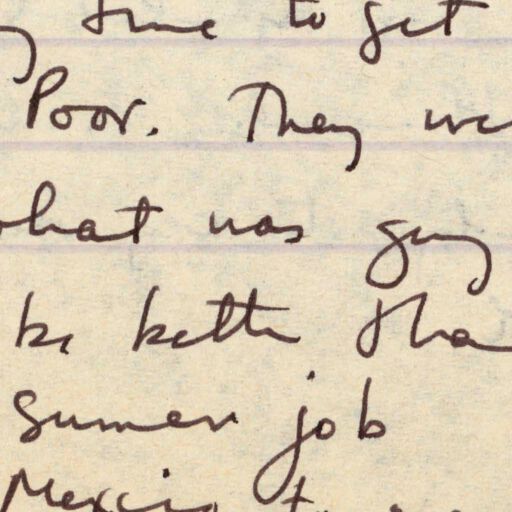 time to get
Poor. They we
what was going
be better than
summer job
Mexico to